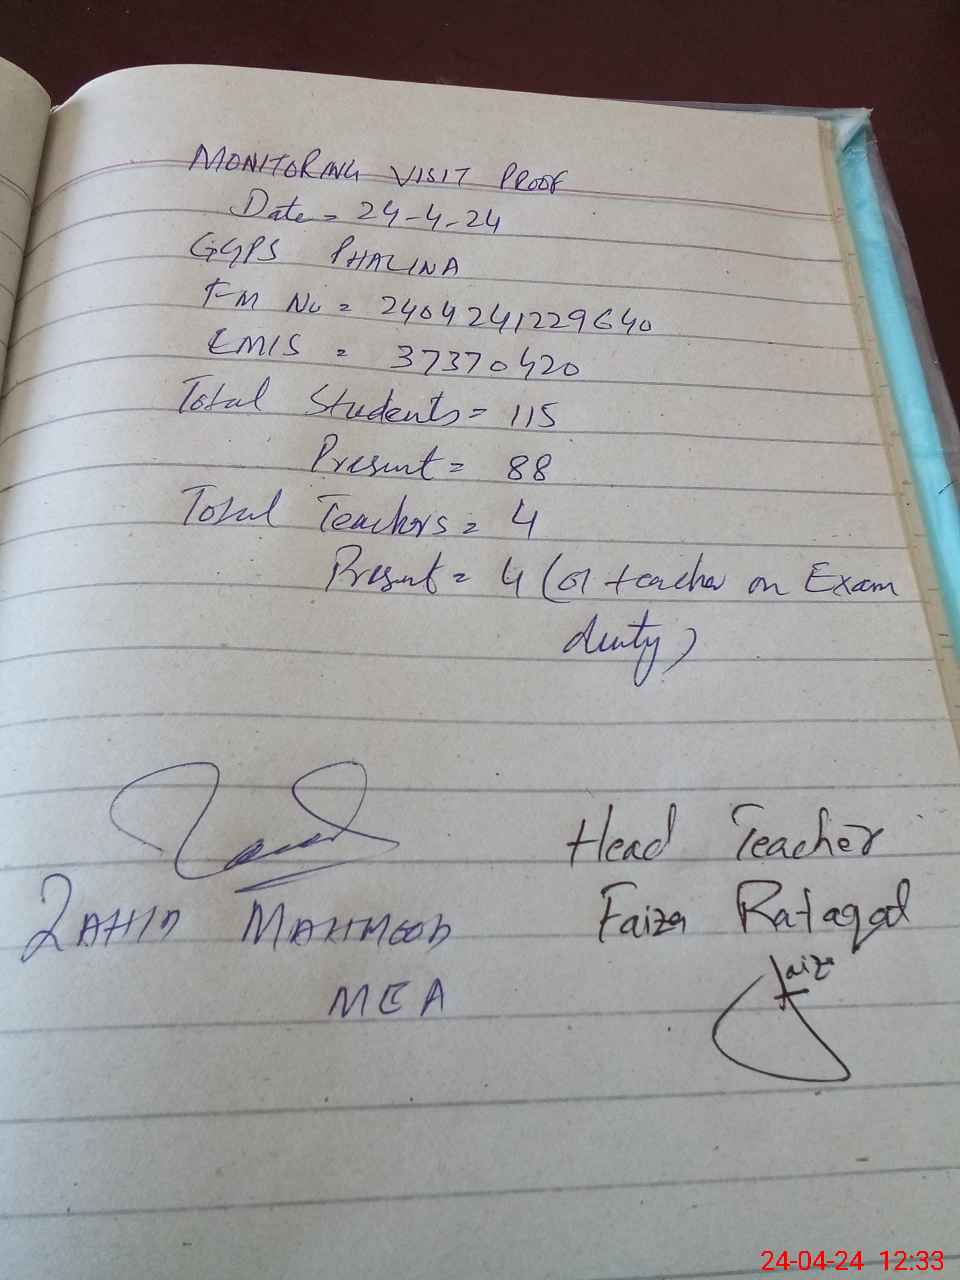 MONITORING VISIT PROOF
Date = 24-4-24
GGPS PHALINA
FM No = 2404241229640
EMIS = 37370420
Total Students = 115
Present = 88
Total Teachers = 4
Present = 4 (01 teacher on Exam
duty)
ZAHID MAHMOOD
MEA
Head Teacher
Faiza Rafaqat
Faiza
24-04-24 12:33